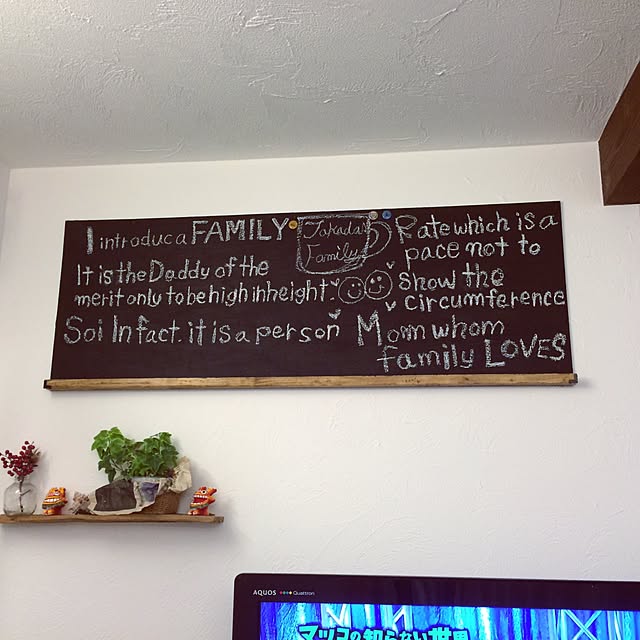 I introduc a FAMILY
It is the Daddy of the
merit only to be high inheight.
Soi In fact. it is a person
Takada
Family
Rate which is a
pace not to
Show the
circumference
Mom whom
family LOVES
AQUOS Quattron
マツコの知らない世界